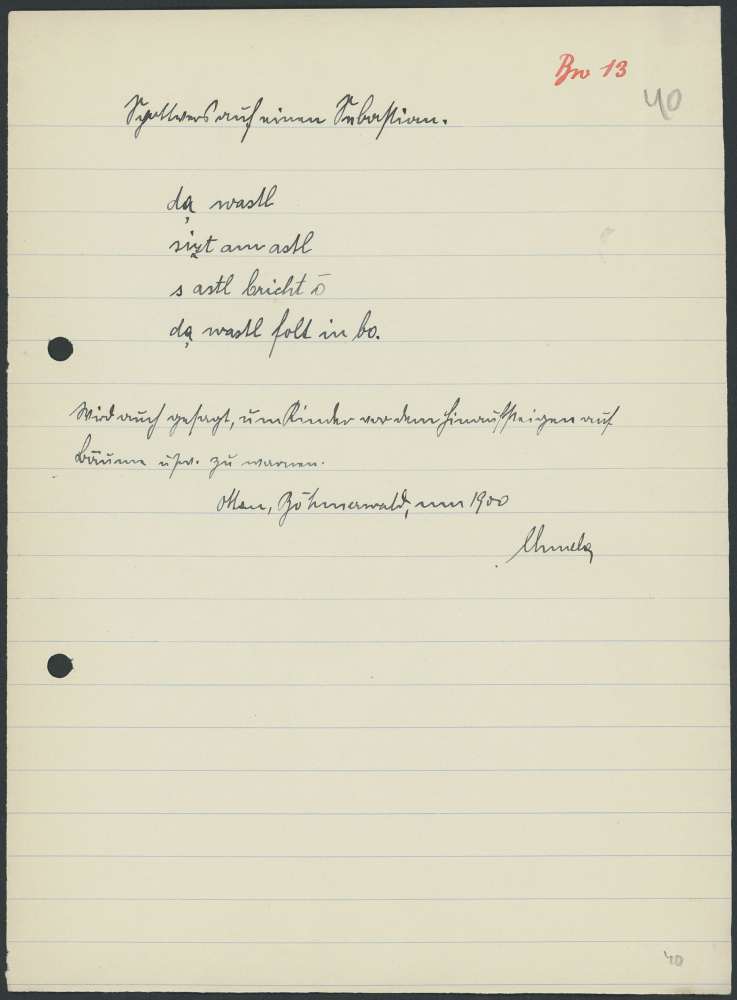 Bw 13
40
Spottvers auf einen Sebastian.
dą wastl
sizt am astl
s astl bricht ō
dą wastl folt in bo.
Wird auch gesagt, um Kinder vor dem Hinaufsteigen auf
Bäume usw. zu warnen.
Ottau, Böhmerwald, um 1900
40